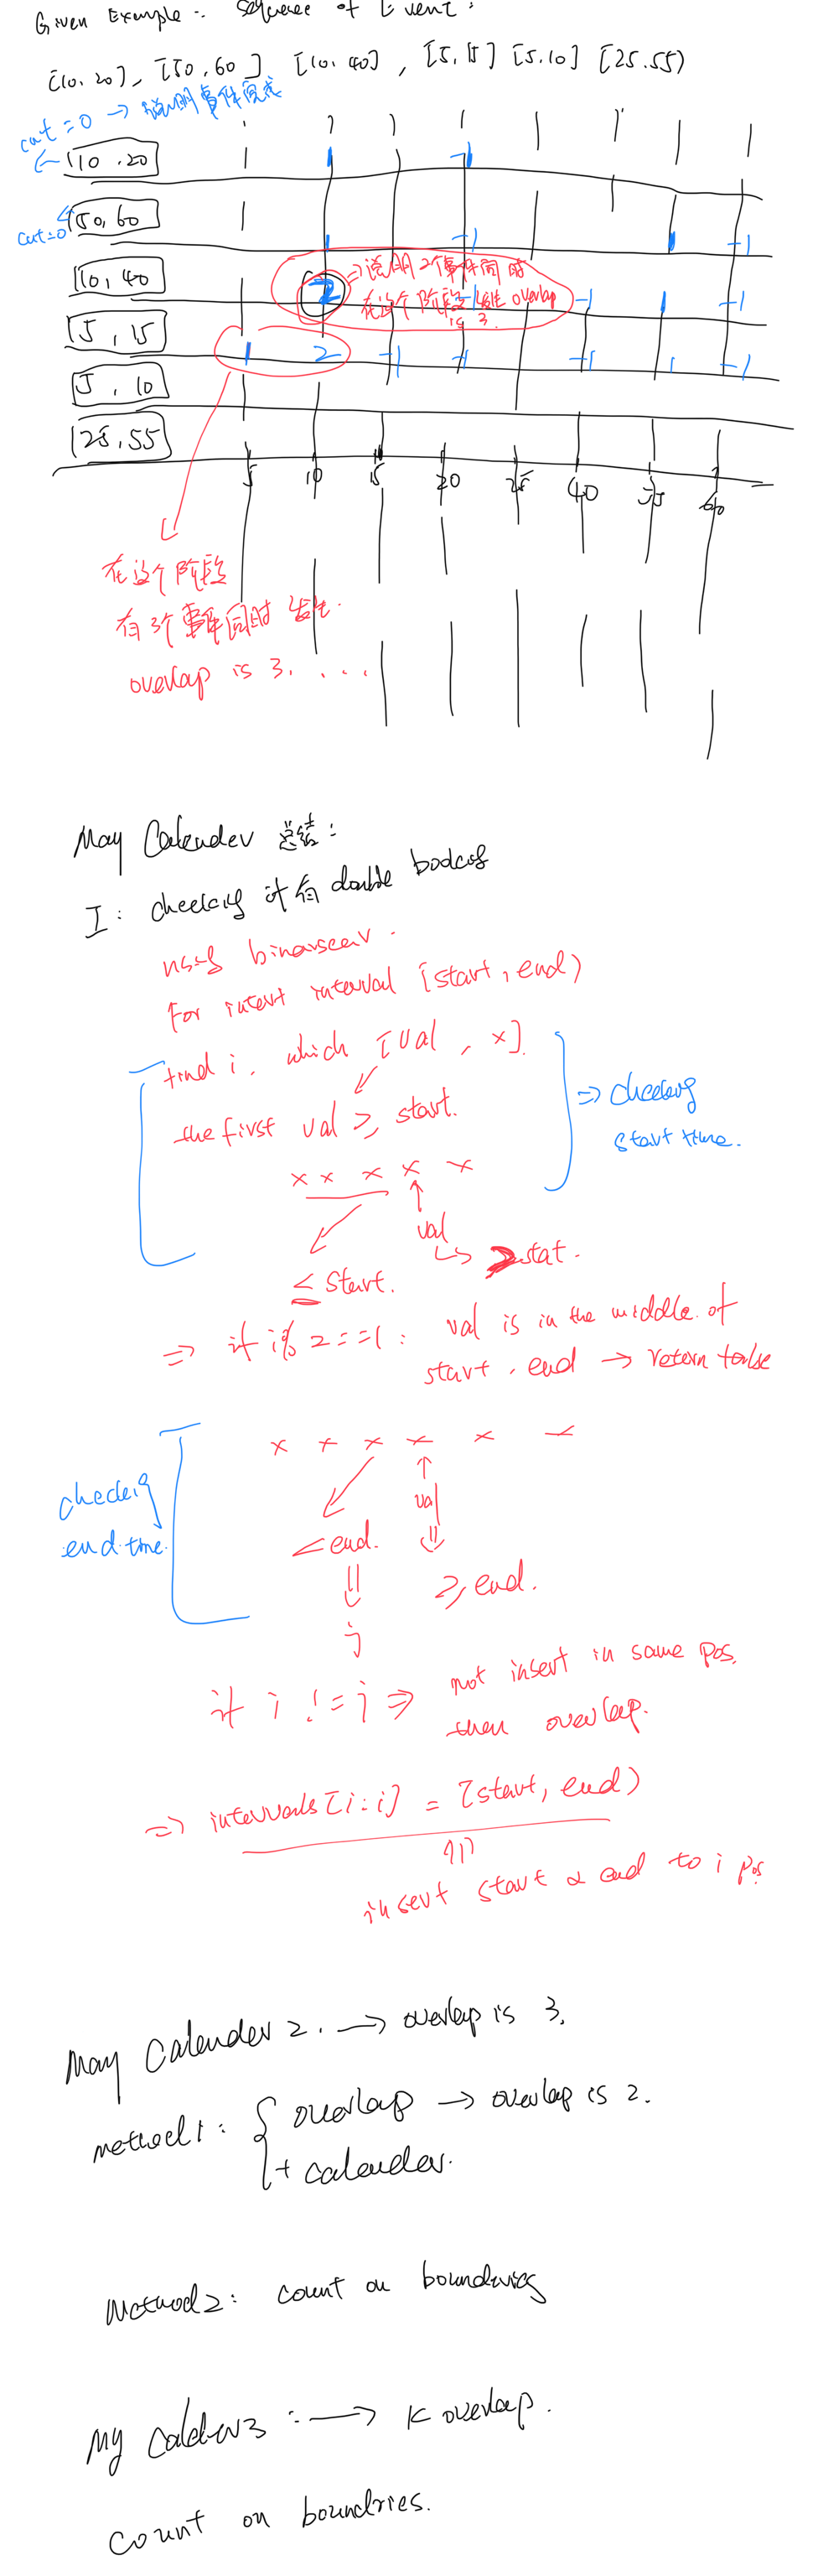 Given Example: Sequence of Event:
[10, 20], [50, 60] [10, 40], [5, 15] [5, 10] [25, 55)
cnt = 0 → 说明事件完成
10, 20
1 -1
50, 60
cnt=0
1 -1 1 -1
10, 40
2 ⇒ 说明2个事件同时
在这个阶段 发生 overlap
is 3.
-1 -1 1 -1
5, 15
1 2 -1 -1 -1 1 -1
5, 10
25, 55
5 10 15 20 25 40 55 60
在这个阶段
有3个事件同时发生.
overlap is 3. . . .
May Calender 总结:
I: checking if 有 double
using
For interval [start, end)
find i, which [val, x].
the first val ≥ start.
⇒ checking
start time.
x x x x x
val
≤ start.
⇒ if i % 2 == 1: val is in the middle of
start, end → return false
x x x x x x
checking
end time.
val
< end.
≥ end.
j
if i != j ⇒ not insert in same pos.
then overlap.
⇒ intervals[i:i] = [start, end)
insert start & end to i pos
May Calender 2. → overlap is 3.
method1: { overlap → overlap is 2.
+ calender.
Method2: count on boundries
My 3: → K overlap.
Count on boundries.